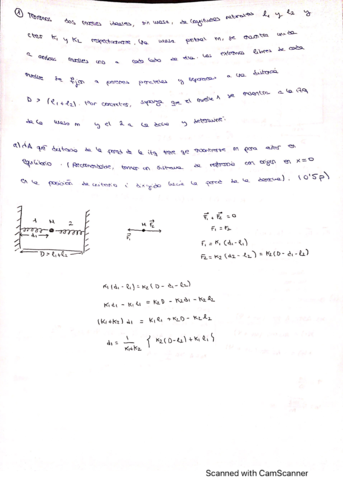 ① Tenemos dos muelles ideales, sin masa, de longitudes naturales l₁ y l₂ y
ctes K₁ y K₂ respectivamente. Una masa puntual m, se encuentra unida
a ambos muelles uno a cada lado de ella. Los extremos libres de cada
muelle se fijan a paredes paralelas y separadas a una distancia
D > (l₁+l₂). Por convenio, suponga que el muelle 1 se encuentra a la izq
de la masa m y el 2 a la derecha
a) ¿A qué distancia de la pared de la izq tiene que encontrarse m para estar en
equilibrio? (Recomendación, tomar un sistema de referencia con origen en x=0
en la posición de equilibrio dirigido hacia la pared de la derecha). (0'5p)
1 M 2
d₁
D > l₁+l₂
M F⃗₂
F⃗₁
F⃗₁ + F⃗₂ = 0
F₁ = F₂
F₁ = K₁ (d₁-l₁)
F₂ = K₂ (d₂-l₂) = K₂(D-d₁-l₂)
K₁(d₁-l₁) = K₂(D-d₁-l₂)
K₁d₁ - K₁l₁ = K₂D - K₂d₁ - K₂l₂
(K₁+K₂) d₁ = K₁l₁ + K₂D - K₂l₂
d₁ = 1/(K₁+K₂) { K₂(D-l₂) + K₁l₁ }
Scanned with CamScanner